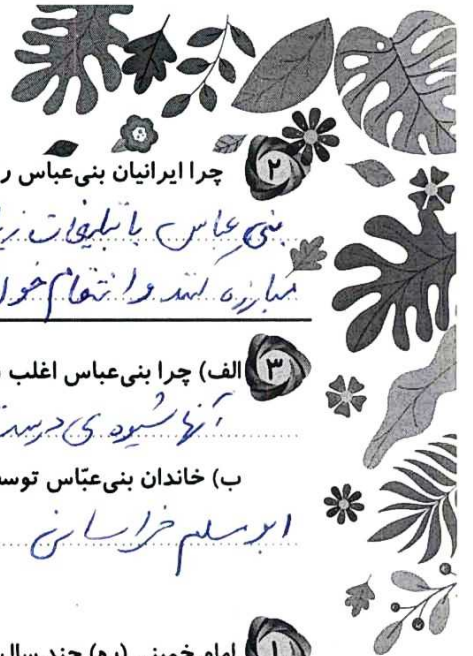 ۲ چرا ایرانیان بنی‌عباس ر
بنی عباس با تبلیغات
مبارزه کنند و انتقام خون
۳ الف) چرا بنی‌عباس اغلب
آنها شیوه ی درست
ب) خاندان بنی‌عبّاس توسـ
ابومسلم خراسانی
۱ امام خمینی (ره) چند سال